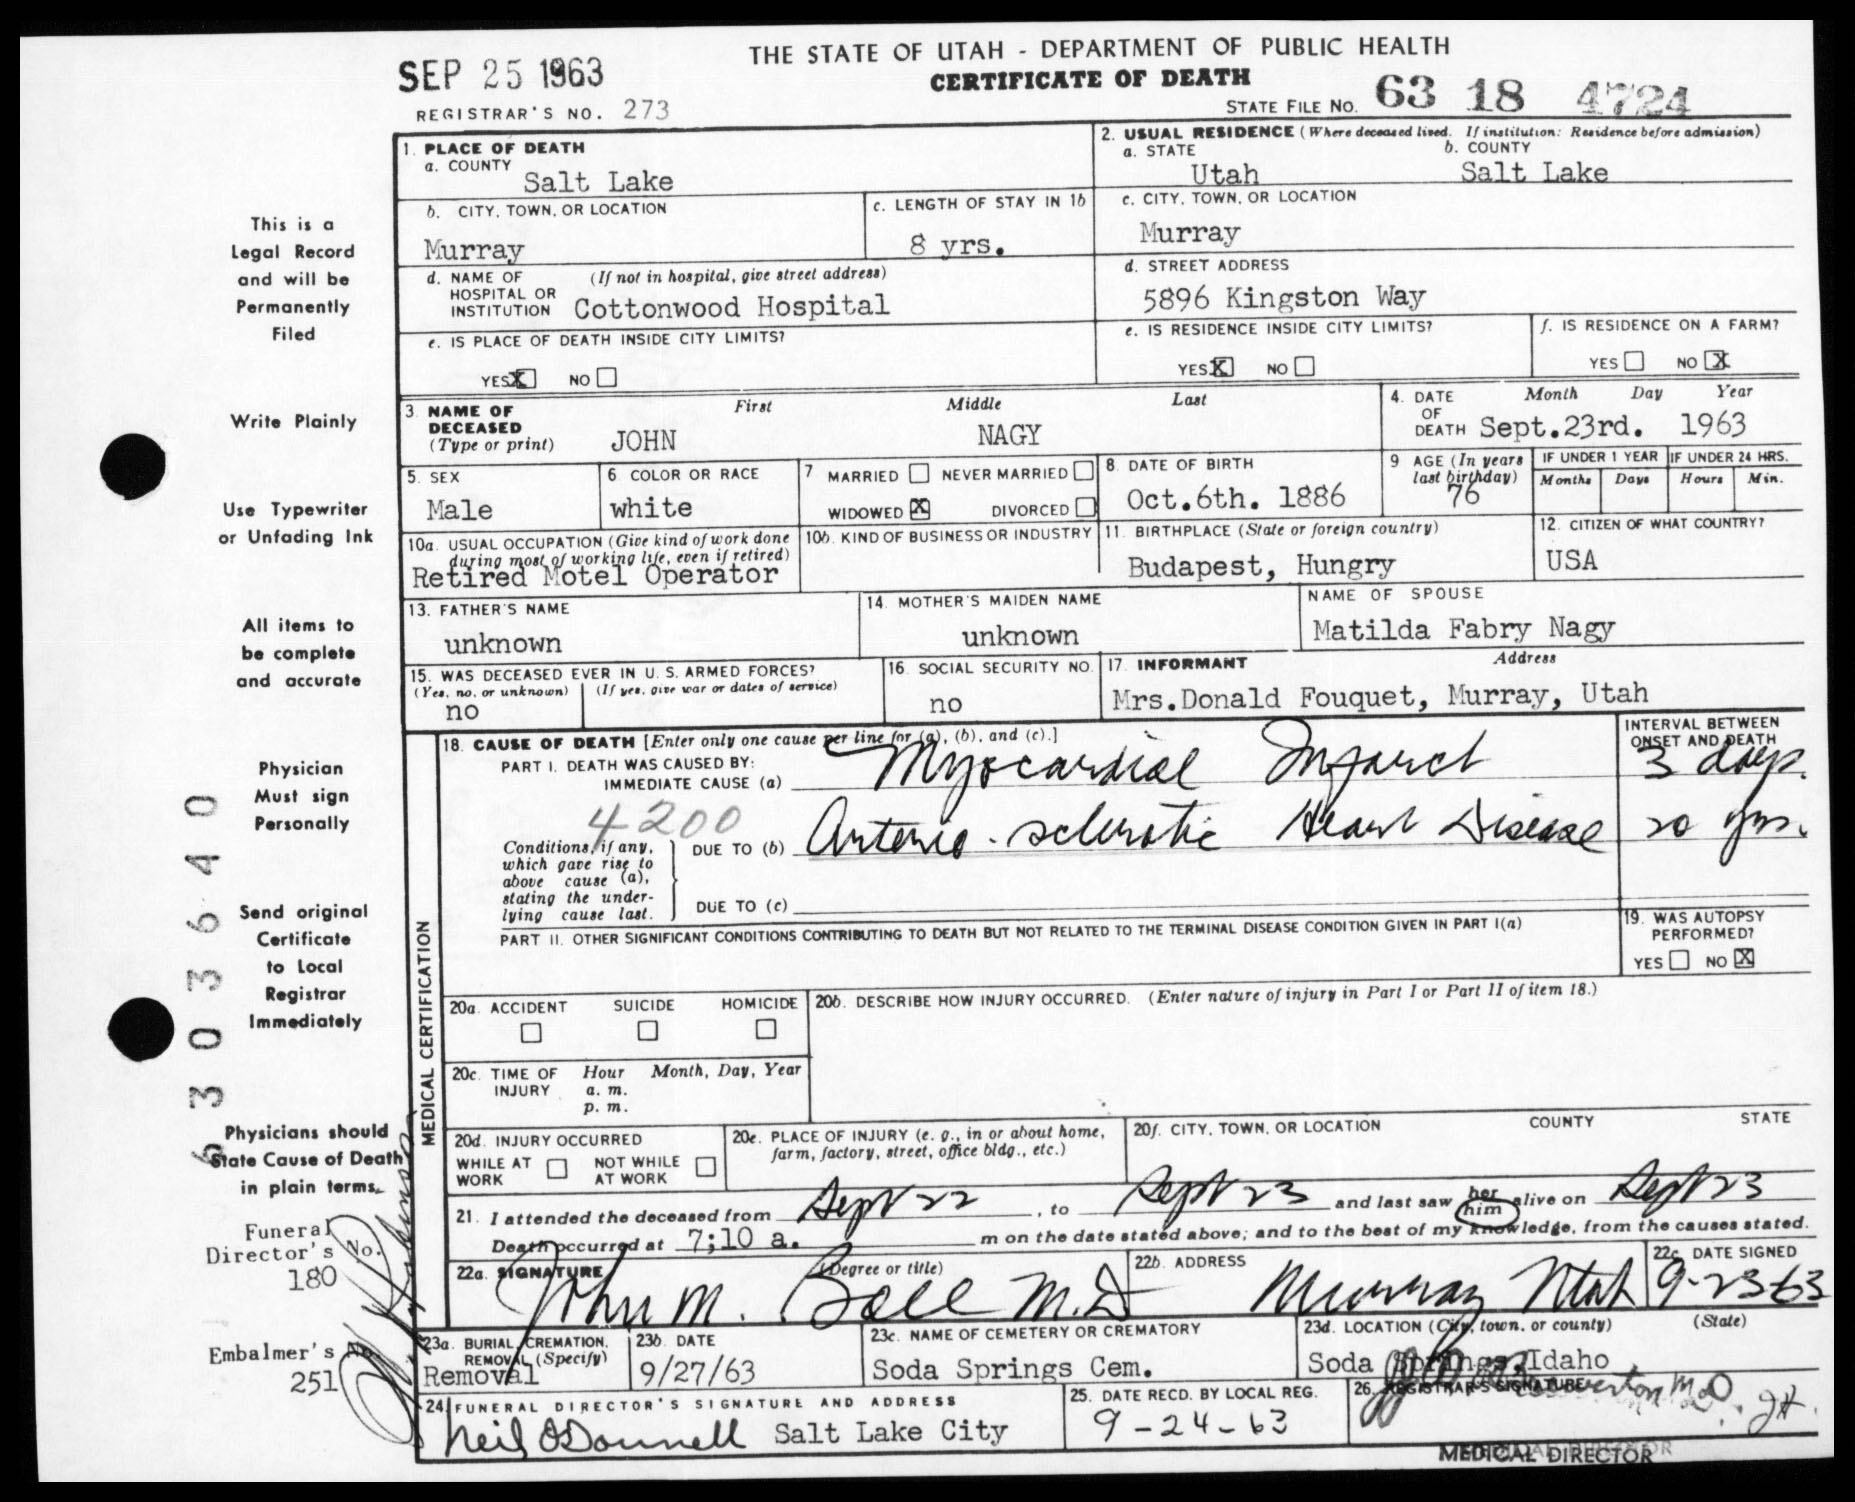 THE STATE OF UTAH - DEPARTMENT OF PUBLIC HEALTH
SEP 25 1963
CERTIFICATE OF DEATH
REGISTRAR'S NO. 273
STATE FILE NO. 63 18 4724
1. PLACE OF DEATH
a. COUNTY
Salt Lake
2. USUAL RESIDENCE (Where deceased lived. If institution: Residence before admission)
a. STATE b. COUNTY
Utah Salt Lake
b. CITY, TOWN, OR LOCATION
Murray
c. LENGTH OF STAY IN 1b
8 yrs.
c. CITY, TOWN, OR LOCATION
Murray
d. NAME OF (If not in hospital, give street address)
HOSPITAL OR
INSTITUTION Cottonwood Hospital
d. STREET ADDRESS
5896 Kingston Way
e. IS PLACE OF DEATH INSIDE CITY LIMITS?
YES X NO
e. IS RESIDENCE INSIDE CITY LIMITS?
YES X NO
f. IS RESIDENCE ON A FARM?
YES NO X
3. NAME OF DECEASED
(Type or print)
First Middle Last
JOHN NAGY
4. DATE OF DEATH
Month Day Year
Sept.23rd. 1963
5. SEX
Male
6 COLOR OR RACE
white
7 MARRIED NEVER MARRIED
WIDOWED X DIVORCED
8. DATE OF BIRTH
Oct.6th. 1886
9 AGE (In years last birthday)
76
IF UNDER 1 YEAR IF UNDER 24 HRS.
Months Days Hours Min.
10a. USUAL OCCUPATION (Give kind of work done
during most of working life, even if retired)
Retired Motel Operator
10b. KIND OF BUSINESS OR INDUSTRY
11. BIRTHPLACE (State or foreign country)
Budapest, Hungry
12. CITIZEN OF WHAT COUNTRY?
USA
13. FATHER'S NAME
unknown
14. MOTHER'S MAIDEN NAME
unknown
NAME OF SPOUSE
Matilda Fabry Nagy
15. WAS DECEASED EVER IN U.S. ARMED FORCES?
(Yes, no, or unknown) (If yes, give war or dates of service)
no
16. SOCIAL SECURITY NO.
no
17. INFORMANT Address
Mrs.Donald Fouquet, Murray, Utah
MEDICAL CERTIFICATION
18. CAUSE OF DEATH [Enter only one cause per line for (a), (b), and (c).]
INTERVAL BETWEEN
ONSET AND DEATH
PART I. DEATH WAS CAUSED BY:
IMMEDIATE CAUSE (a) Myocardial Infarct 3 days.
4200
Conditions, if any,
which gave rise to
above cause (a),
stating the under-
lying cause last.
DUE TO (b) Arterio-sclerotic Heart Disease 20 yrs.
DUE TO (c)
PART II. OTHER SIGNIFICANT CONDITIONS CONTRIBUTING TO DEATH BUT NOT RELATED TO THE TERMINAL DISEASE CONDITION GIVEN IN PART I(a)
19. WAS AUTOPSY
PERFORMED?
YES NO X
20a. ACCIDENT SUICIDE HOMICIDE
20b. DESCRIBE HOW INJURY OCCURRED. (Enter nature of injury in Part I or Part II of item 18.)
20c. TIME OF INJURY
Hour Month, Day, Year
a. m.
p. m.
20d. INJURY OCCURRED
WHILE AT WORK NOT WHILE AT WORK
20e. PLACE OF INJURY (e. g., in or about home,
farm, factory, street, office bldg., etc.)
20f. CITY, TOWN, OR LOCATION COUNTY STATE
21. I attended the deceased from Sept 22, to Sept 23 and last saw her him alive on Sept 23
Death occurred at 7;10 a. m on the date stated above; and to the best of my knowledge, from the causes stated.
22a. SIGNATURE (Degree or title)
John M. Bell M.D
22b. ADDRESS
Murray Utah
22c. DATE SIGNED
9-23-63
23a. BURIAL, CREMATION,
REMOVAL (Specify)
Removal
23b. DATE
9/27/63
23c. NAME OF CEMETERY OR CREMATORY
Soda Springs Cem.
23d. LOCATION (City, town, or county) (State)
Soda Springs, Idaho
24. FUNERAL DIRECTOR'S SIGNATURE AND ADDRESS
Neil O'Donnell Salt Lake City
25. DATE RECD. BY LOCAL REG.
9-24-63
26. REGISTRAR'S SIGNATURE
MEDICAL DIRECTOR
This is a
Legal Record
and will be
Permanently
Filed
Write Plainly
Use Typewriter
or Unfading Ink
All items to
be complete
and accurate
Physician
Must sign
Personally
Send original
Certificate
to Local
Registrar
Immediately
Physicians should
State Cause of Death
in plain terms.
Funeral
Director's No.
180
Embalmer's No.
251
6303640